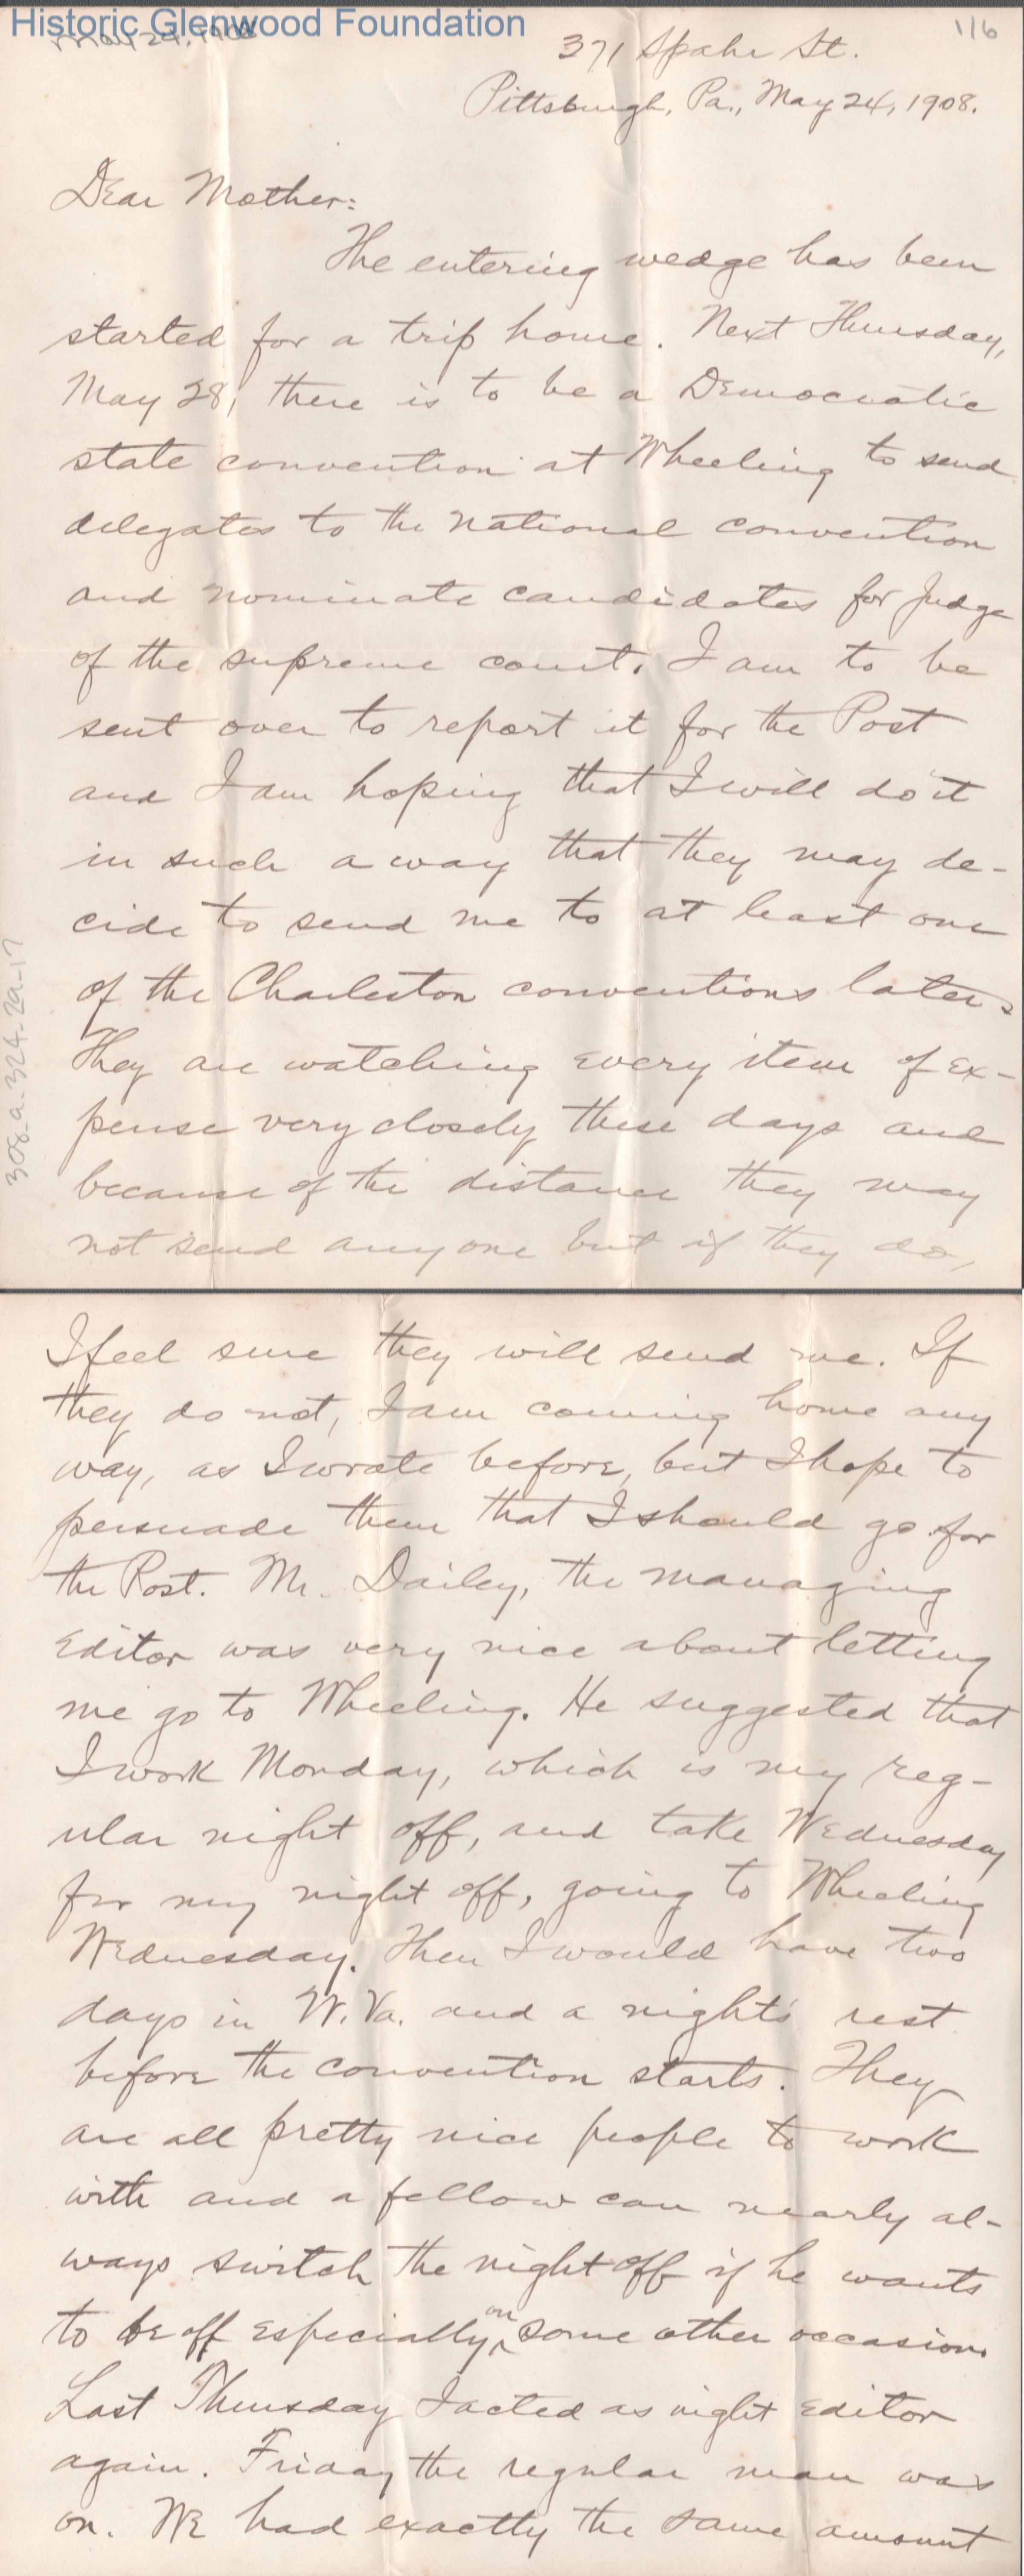 Historic Glenwood Foundation
May 24, 1908
116
371 Spahr St.
Pittsburgh, Pa., May 24, 1908.
Dear Mother:
The entering wedge has been
started for a trip home. Next Thursday,
May 28, there is to be a Democratic
state convention at Wheeling to send
delegates to the national convention
and nominate candidates for judge
of the supreme court. I am to be
sent over to report it for the Post
and I am hoping that I will do it
in such a way that they may de-
cide to send me to at least one
of the Charleston conventions later.
They are watching every item of ex-
pense very closely these days and
because of the distance they may
not send anyone but if they do,
308-a-324-2a-17
I feel sure they will send me. If
they do not, I am coming home any
way, as I wrote before, but I hope to
persuade them that I should go for
the Post. Mr. Dailey, the managing
editor was very nice about letting
me go to Wheeling. He suggested that
I work Monday, which is my reg-
ular night off, and take Wednesday
for my night off, going to Wheeling
Wednesday. Then I would have two
days in W. Va. and a night's rest
before the convention starts. They
are all pretty nice people to work
with and a fellow can nearly al-
ways switch the night off if he wants
to be off especially on some other occasion.
Last Thursday I acted as night editor
again. Friday the regular man was
on. We had exactly the same amount